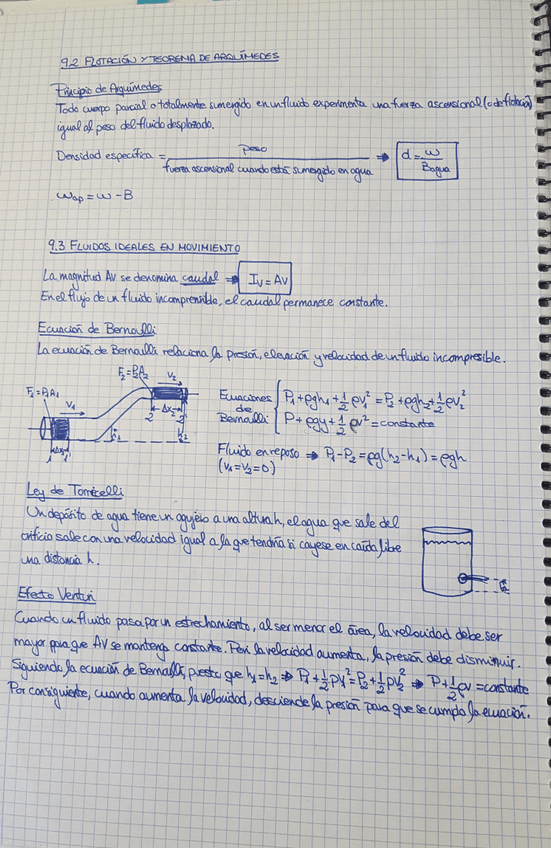 9.2 FLOTACIÓN Y TEOREMA DE ARQUÍMEDES
Principio de Arquímedes
Todo cuerpo parcial o totalmente sumergido en un fluido experimenta una fuerza ascensional (o de flotación)
igual al peso del fluido desplazado.
Densidad específica = peso / fuerza ascensional cuando está sumergido en agua ⇒ d = w / Bagua
wap = w - B
9.3 FLUIDOS IDEALES EN MOVIMIENTO
La magnitud Av se denomina caudal ⇒ Iv = Av
En el flujo de un fluido incompresible, el caudal permanece constante.
Ecuación de Bernoulli
La ecuación de Bernoulli relaciona la presión, elevación y velocidad de un fluido incompresible.
F1=P1A1 v1 F2=P2A2 v2
Δx2
2 2'
h1 h2
Δx1
1 1'
Ecuaciones de Bernoulli { P1+ρgh1+½ρv1²=P2+ρgh2+½ρv2²
P+ρgy+½ρv²=constante
Fluido en reposo ⇒ P1-P2=ρg(h2-h1)=ρgh
(v1=v2=0)
Ley de Torricelli
Un depósito de agua tiene un agujero a una altura h, el agua que sale del
orificio sale con una velocidad igual a la que tendría si cayese en caída libre
una distancia h.
Efecto Venturi
Cuando un fluido pasa por un estrechamiento, al ser menor el área, la velocidad debe ser
mayor para que Av se mantenga constante. Pero si la velocidad aumenta, la presión debe disminuir.
Siguiendo la ecuación de Bernoulli, puesto que h1=h2 ⇒ P1+½ρv1²=P2+½ρv2² ⇒ P+½ρv=constante
Por consiguiente, cuando aumenta la velocidad, desciende la presión para que se cumpla la ecuación.